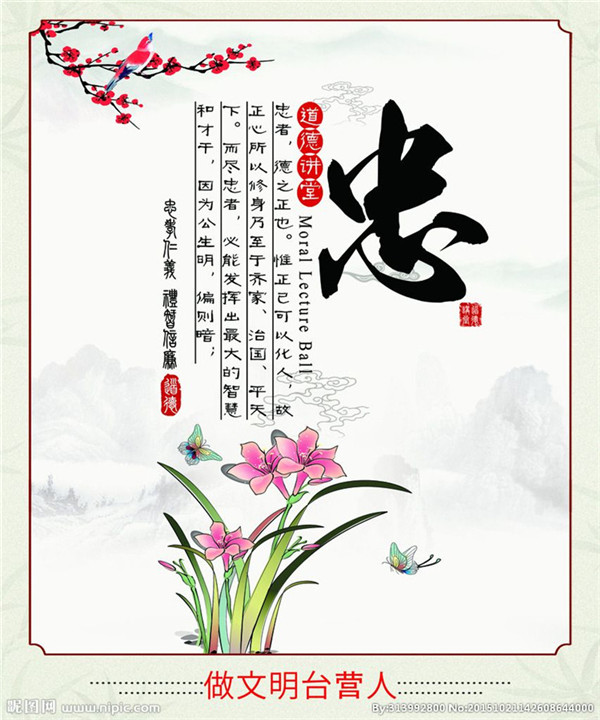 忠
道德讲堂
Moral Lecture Ball
忠者，德之正也。惟正己可以化人，故
正心所以修身乃至于齐家、治国、平天
下。而尽忠者，必能发挥出最大的智慧
和才干，因为公生明，偏则暗；
忠孝仁義 禮智信廉
道德
做文明台营人
昵图网 www.nipic.com
By:313992800 No:20151021142608644000